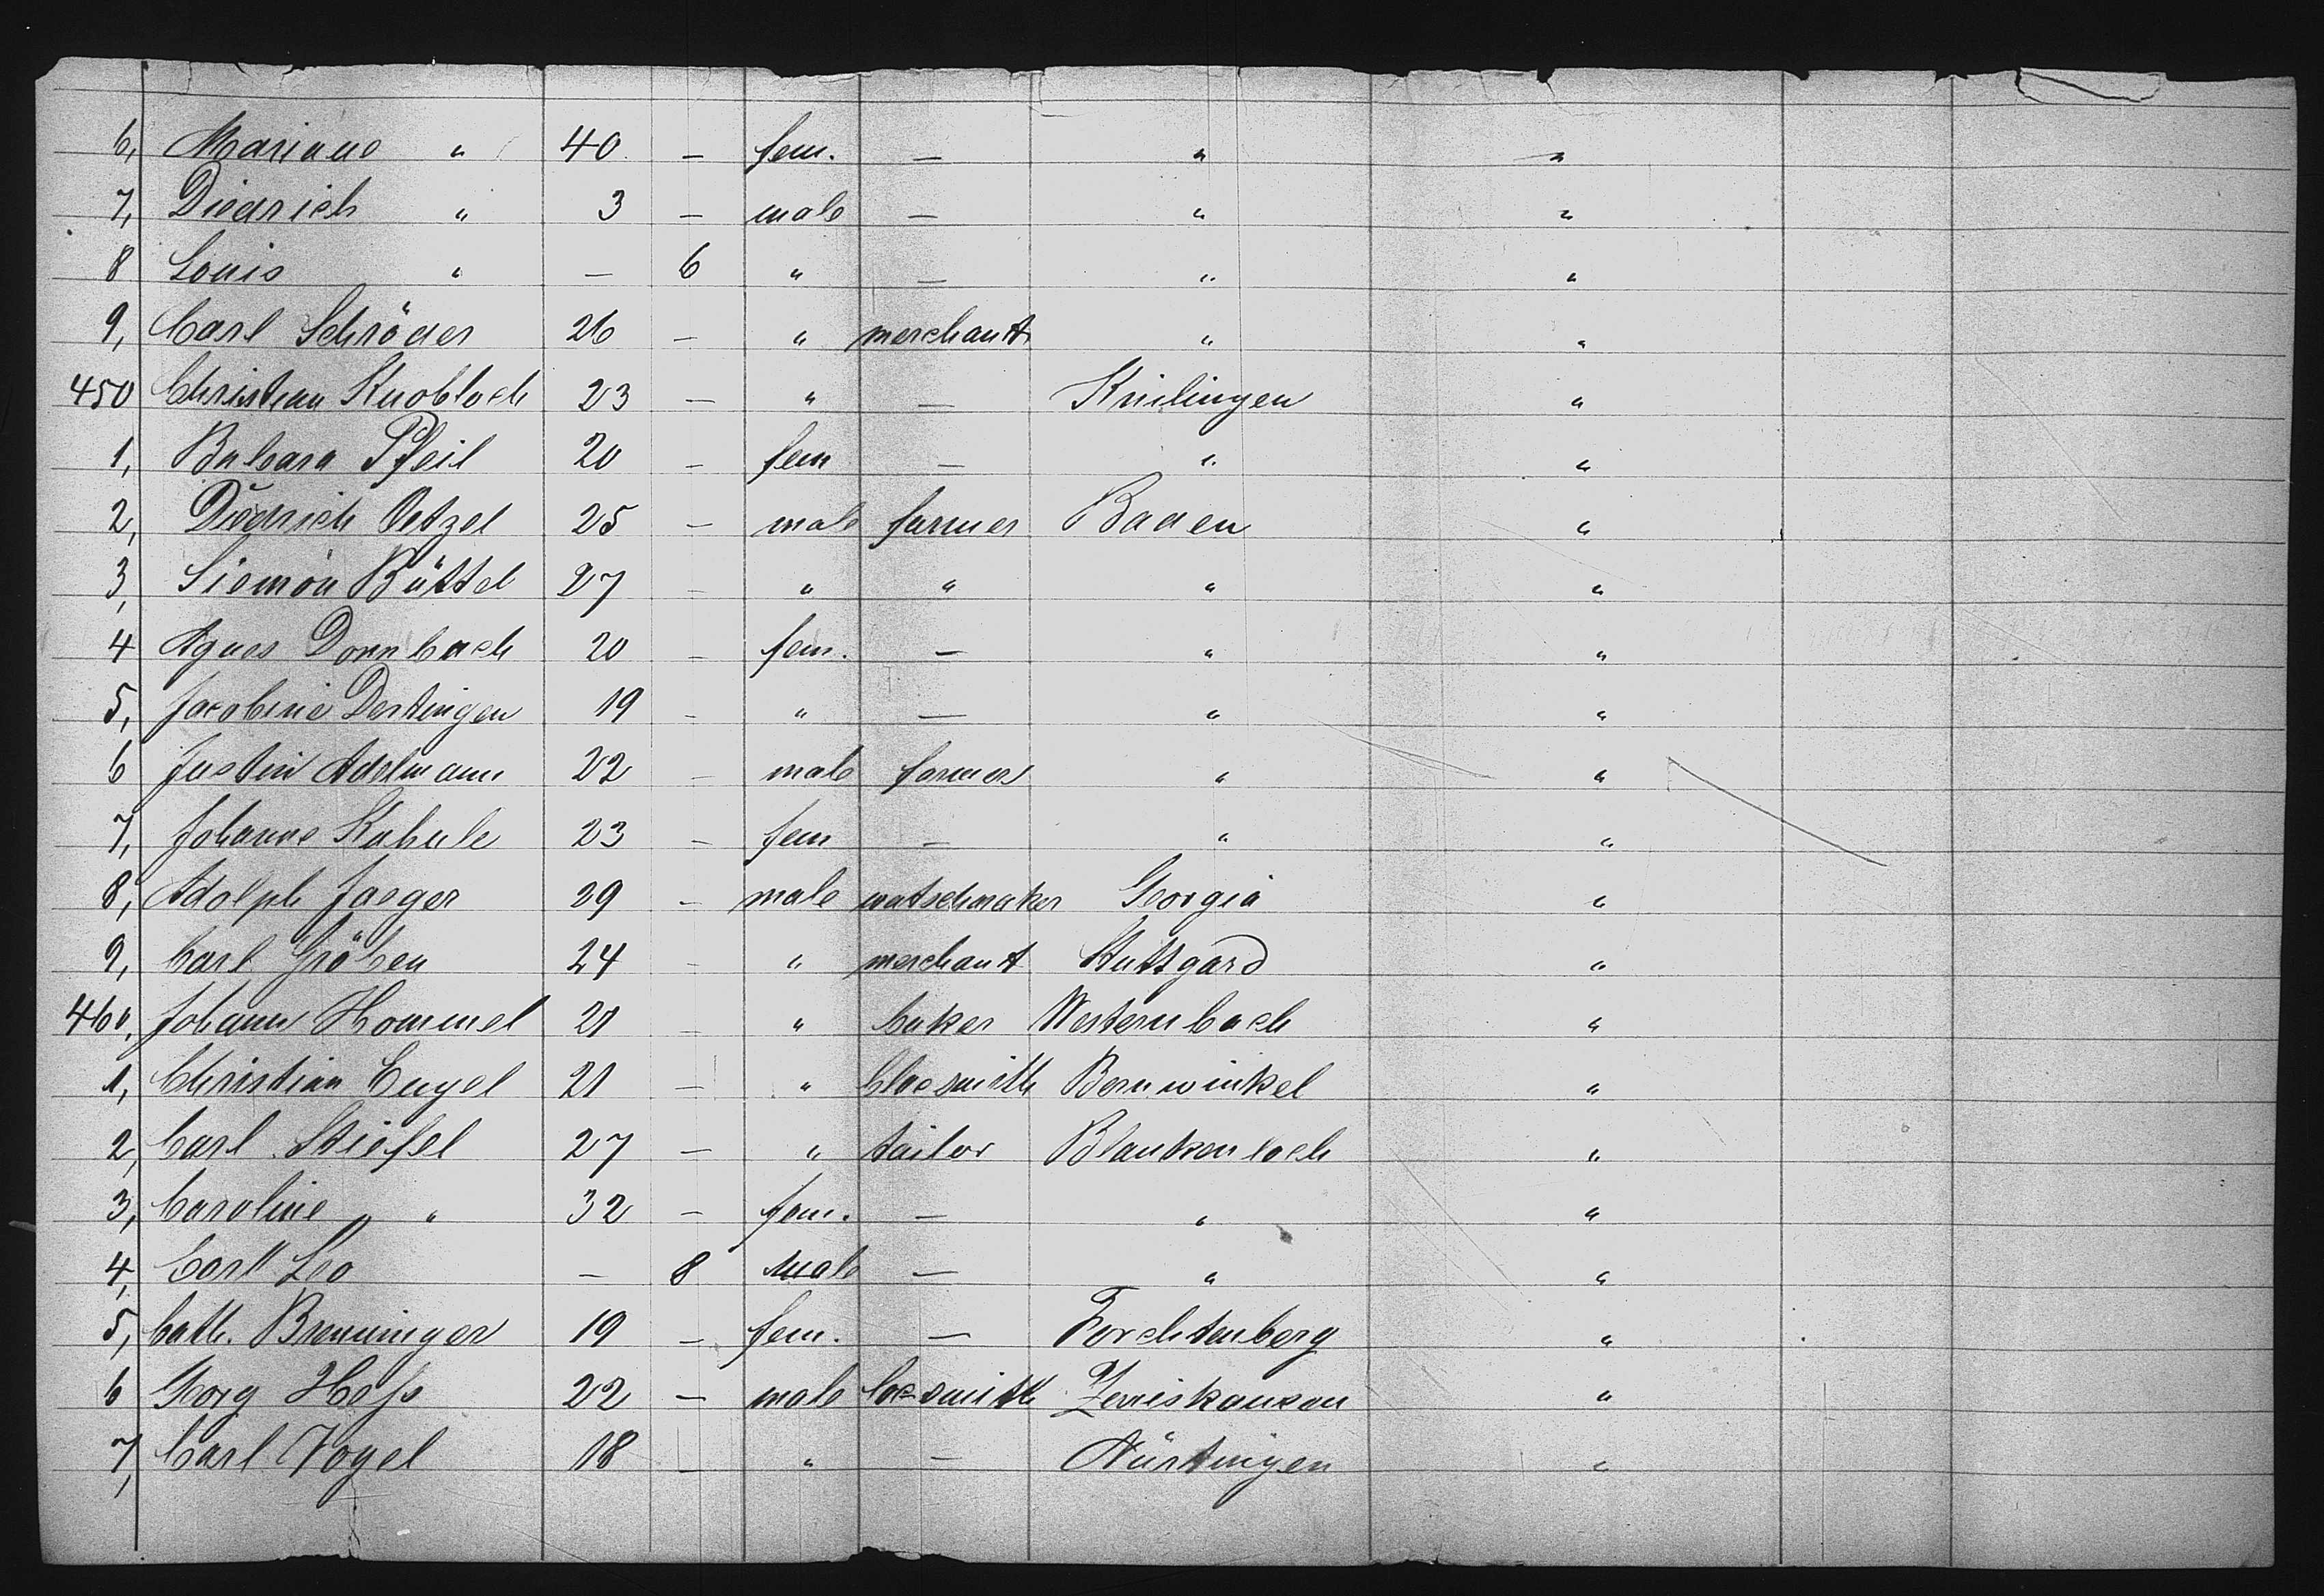 6, Mariane " 40 — fem. — " "
7, Diedrich " 3 — male — " "
8 Louis " — 6 " — " "
9, Carl Schröder 26 — " merchant " "
450 Christian Knobloch 23 — " — Knilingen "
1, Barbara Pfeil 20 — fem — " "
2, Diedrich Oetzel 25 — male farmer Baden "
3, Siemon Büttel 27 — " " " "
4 Agnes Dornbach 20 — fem. — " "
5, Jacobine Dertingen 19 — " — " "
6 Justin Adelmann 22 — male farmer " "
7, Johanne Kahule 23 — fem — " "
8, Adolph Jaeger 29 — male watschmaker Georgia "
9, Carl Gröben 24 — " merchant Stuttgard "
460, Johann Hommel 21 — " baker Westernbach "
1, Christian Engel 21 — " blocsmith Bernwinkel "
2, Carl Stiefel 27 — " tailor Blankenloch "
3, Caroline " 32 — fem. — " "
4, Carl Leo — 8 male — " "
5, Cath. Brenninger 19 — fem. — Forchtenberg "
6 Georg Hess 22 — male locsmith "
7, Carl Vogel 18 — " — Nürtingen "